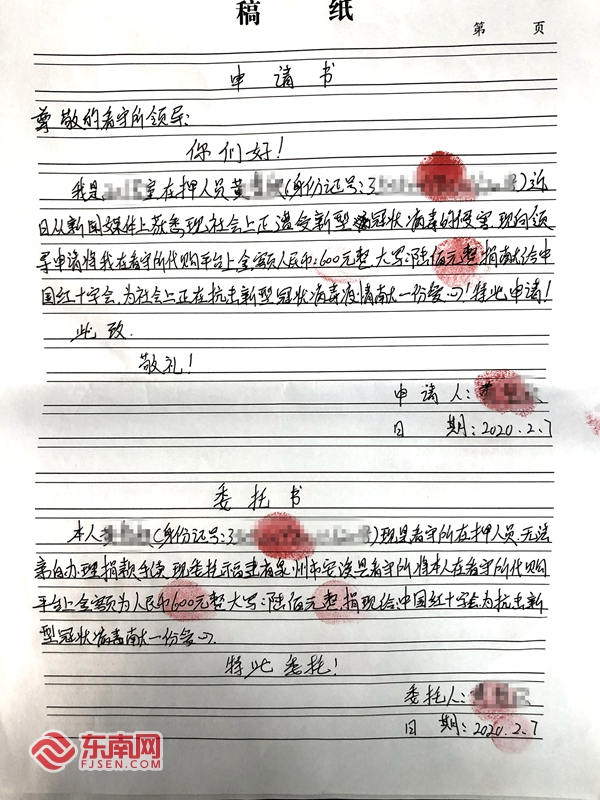 稿 纸
第 页
申 请 书
尊敬的看守所领导:
你们好!
我是 室在押人员黄 (身份证号:3 )近
日从新闻媒体上获悉,现社会上正遭受新型冠状病毒的侵害.现向领
导申请将我在看守所代购平台上金额人民币:600元整.大写:陆佰元整.捐献给中
国红十字会.为社会上正在抗击新型冠状病毒疫情献一份爱心!特此申请!
此致.
敬礼!
申 请 人:
日 期:2020.2.7
委 托 书
本人 (身份证号:3 )现是看守所在押人员.无法
亲自办理捐款手续.现委托福建省泉州市安溪县看守所将本人在看守所代购
平台上金额为人民币600元整大写:陆佰元整.捐现给中国红十字会.为抗击新
型冠状病毒献一份爱心.
特此委托!
委托人:
日 期:2020.2.7
东南网
FJSEN.COM